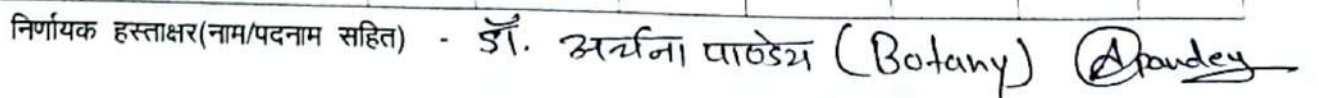 निर्णायक हस्ताक्षर(नाम/पदनाम सहित) - डॉ. अर्चना पाण्डेय (Botany) Apandey